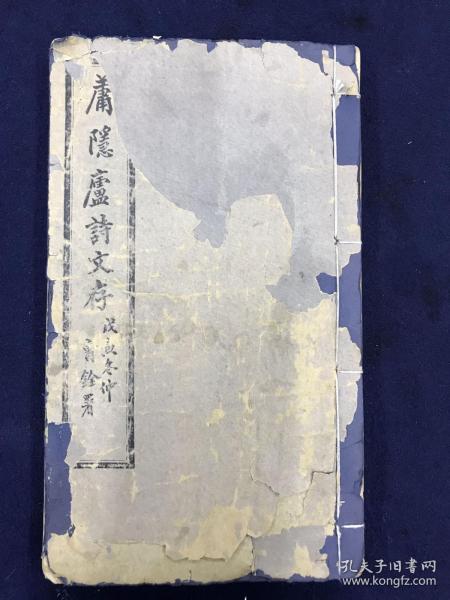 庸隱廬詩文存
戊寅冬仲
銓署
孔夫子旧书网
www.kongfz.com